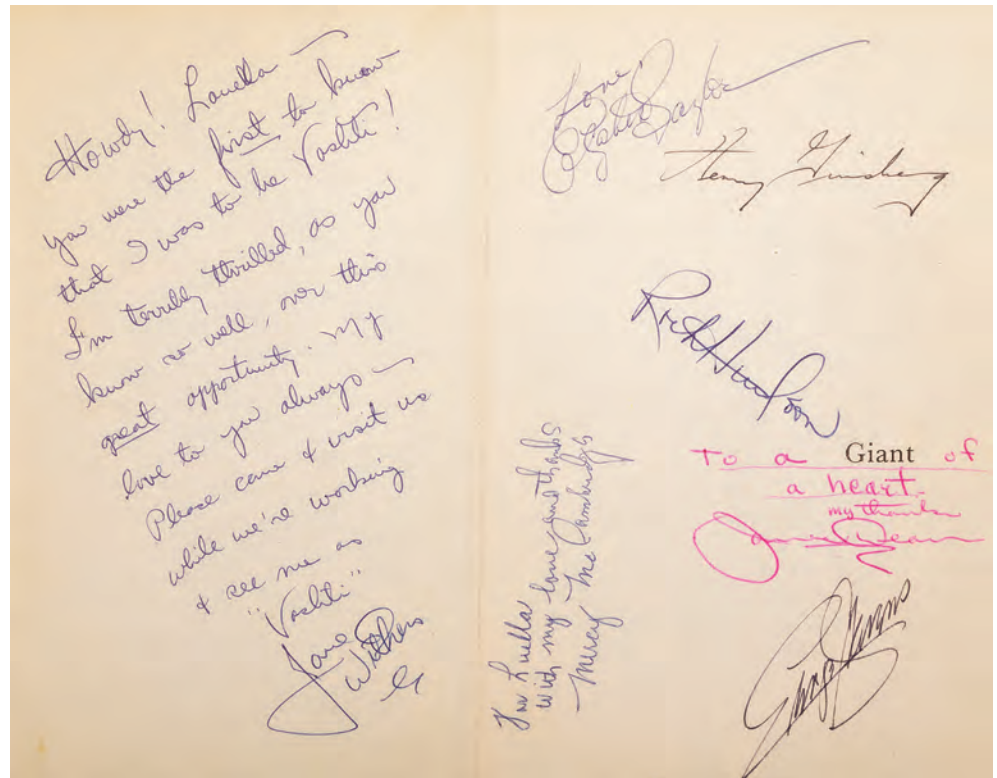 Howdy! Louella —
you were the first to know
that I was to be Vashti!
I'm terribly thrilled, as you
know so well, over this
great opportunity. My
love to you always —
Please come & visit us
while we're working
& see me as
"Vashti"
Jane
Withers
Love,
Elizabeth Taylor
Henry Ginsberg
Rock Hudson
To a Giant of
a heart-
my thanks
James Dean
For Luella
with my love and thanks
Mercy McCambridge
George Stevens